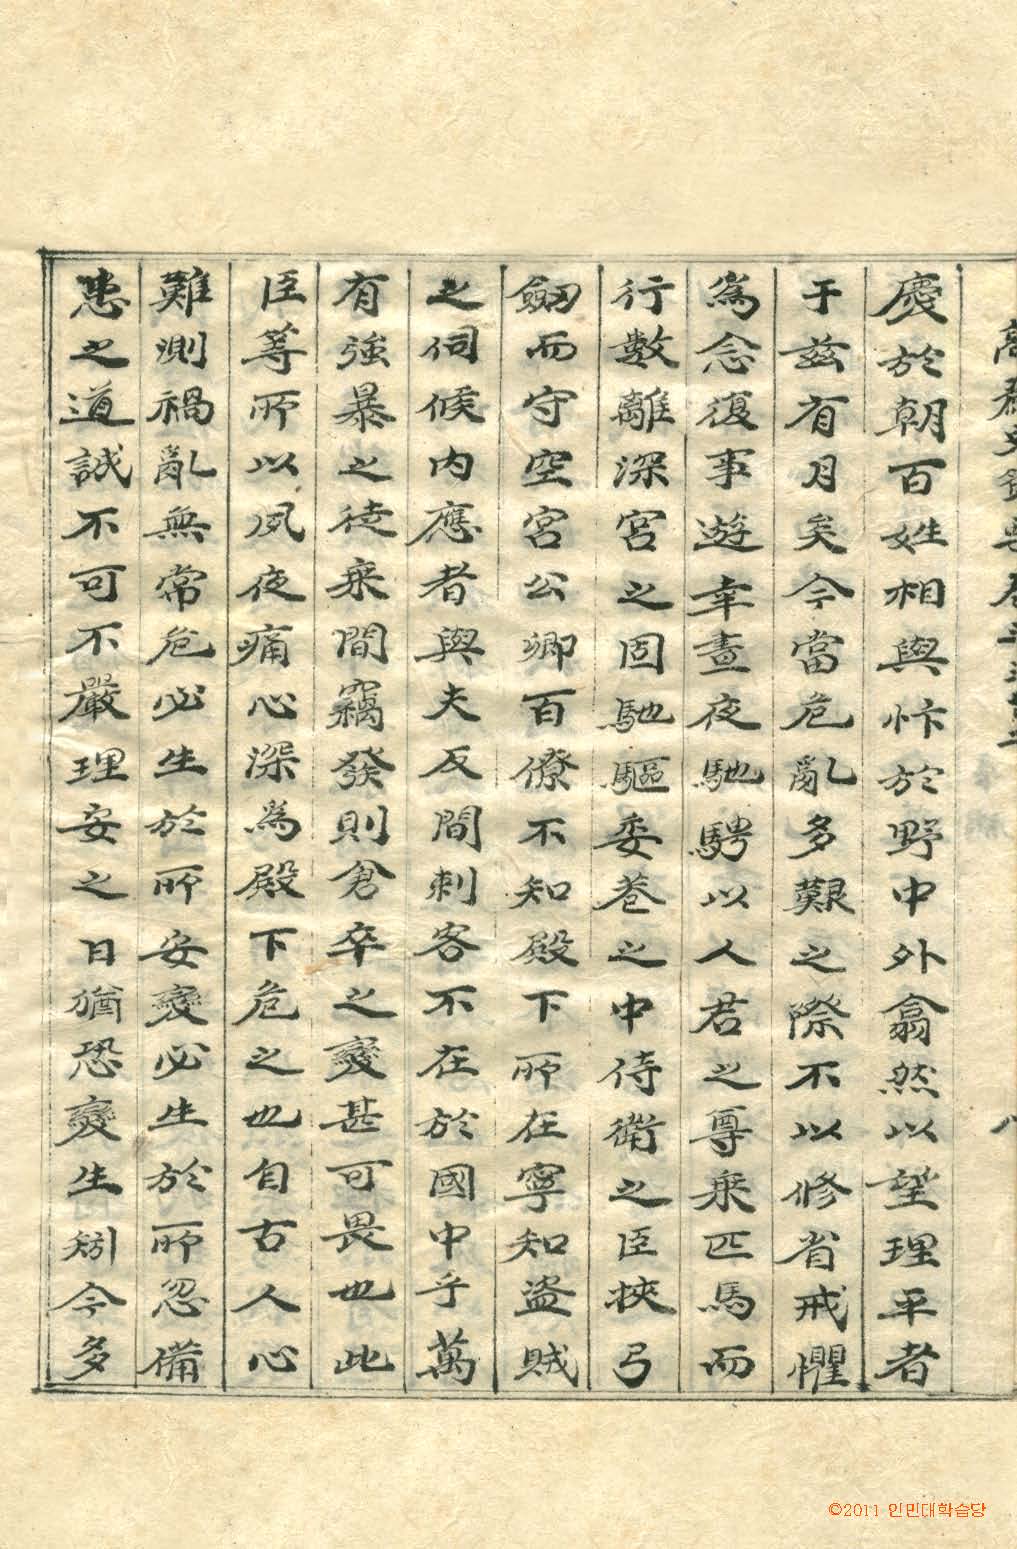 慶於朝百姓相與忭於野中外翕然以望理平者
于茲有月矣今當危亂多艱之際不以修省戒懼
爲念復事遊幸晝夜馳騁以人君之尊乘匹馬而
行數離深宮之固馳驅委巷之中侍衛之臣挾弓
劒而守空宮公卿百僚不知殿下所在寧知盜賊
之伺候內應者與夫反間刺客不在於國中乎萬
有強暴之徒乘間竊發則倉卒之變甚可畏也此
臣等所以夙夜痛心深爲殿下危之也自古人心
難測禍亂無常危必生於所安變必生於所忽備
患之道誠不可不嚴理安之日猶恐變生矧今多
©2011 인민대학습당